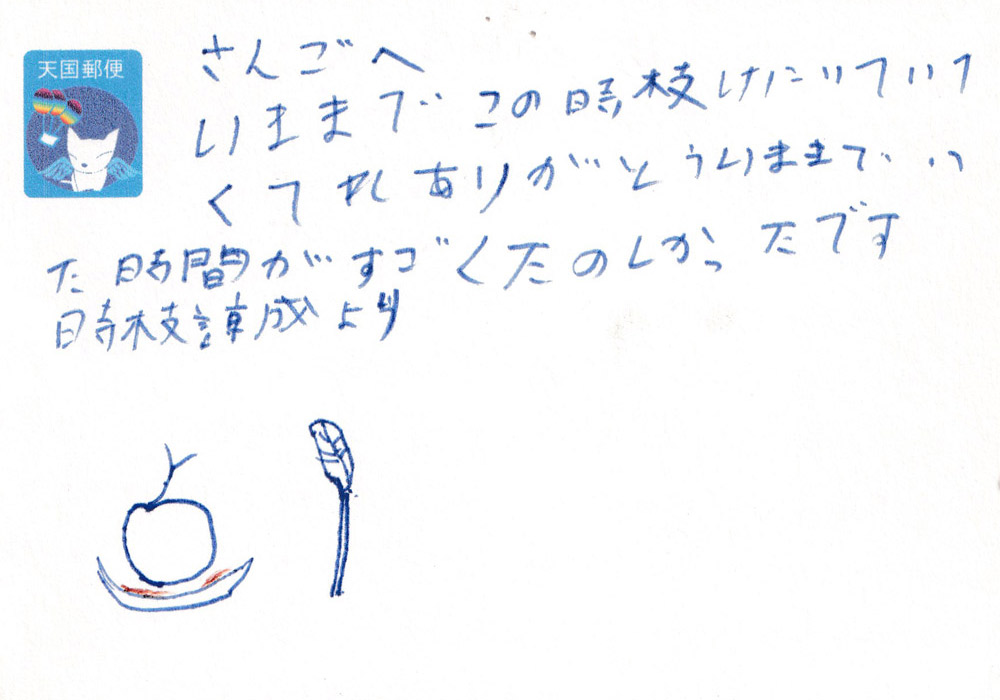 天国郵便
さんごへ
いままで この時枝けにいていて
くてれありがとういままでいつ
た時間がすごくたのしかったです
時枝諄成より